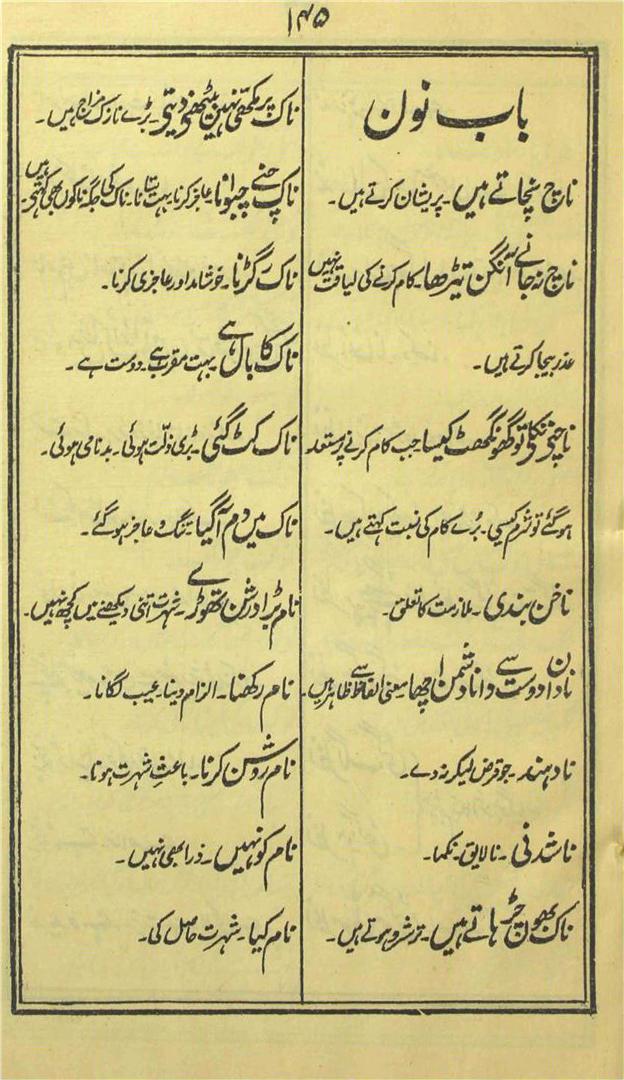 ۱۴۵
باب نون
ناچ نچاتے ہیں۔ پریشان کرتے ہیں۔
ناچ نہ جانے آنگن ٹیڑھا۔ کام کرنے کی لیاقت نہیں
عذر بیجا کرتے ہیں۔
ناچنے نکلی تو گھونگھٹ کیسا۔ جب کام کرنے پر مستعد
ہوگئے تو شرم کیسی۔ بُرے کام کی نسبت کہتے ہیں۔
ناخن بندی۔ ملازمت کا تعلق۔
نادان دوست سے دانا دشمن اچھا۔ معنی الفاظ سے ظاہر ہیں۔
نادہند۔ جو قرض لیکر نہ دے۔
ناشدنی۔ نالایق۔ نکما۔
ناک بھون چڑہاتے ہیں۔ ترشرو ہوتے ہیں۔
ناک پر مکھی نہین بیٹھنے دیتی۔ بڑے نازک مزاج ہیں۔
ناک چنے چبوانا۔ عاجز کرنا۔ بہت ستانا۔ ناک کی جگہ ناکوں بھی کہتے ہیں۔
ناک رگڑنا۔ خوشامد اور عاجزی کرنا۔
ناک کا بال ہے۔ بہت مقرب ہے۔ دوست ہے۔
ناک کٹ گئی۔ بڑی ذلّت ہوئی۔ بدنامی ہوئی۔
ناک میں دم آگیا۔ تنگ و عاجز ہوگئے۔
نام بڑا درشن تھوڑے۔ شہرت اتنی دیکھنے میں کچھ نہیں۔
نام رکھنا۔ الزام دینا۔ عیب لگانا۔
نام روشن کرنا۔ باعثِ شہرت ہونا۔
نام کو نہیں۔ ذرا بھی نہیں۔
نام کیا۔ شہرت حاصل کی۔